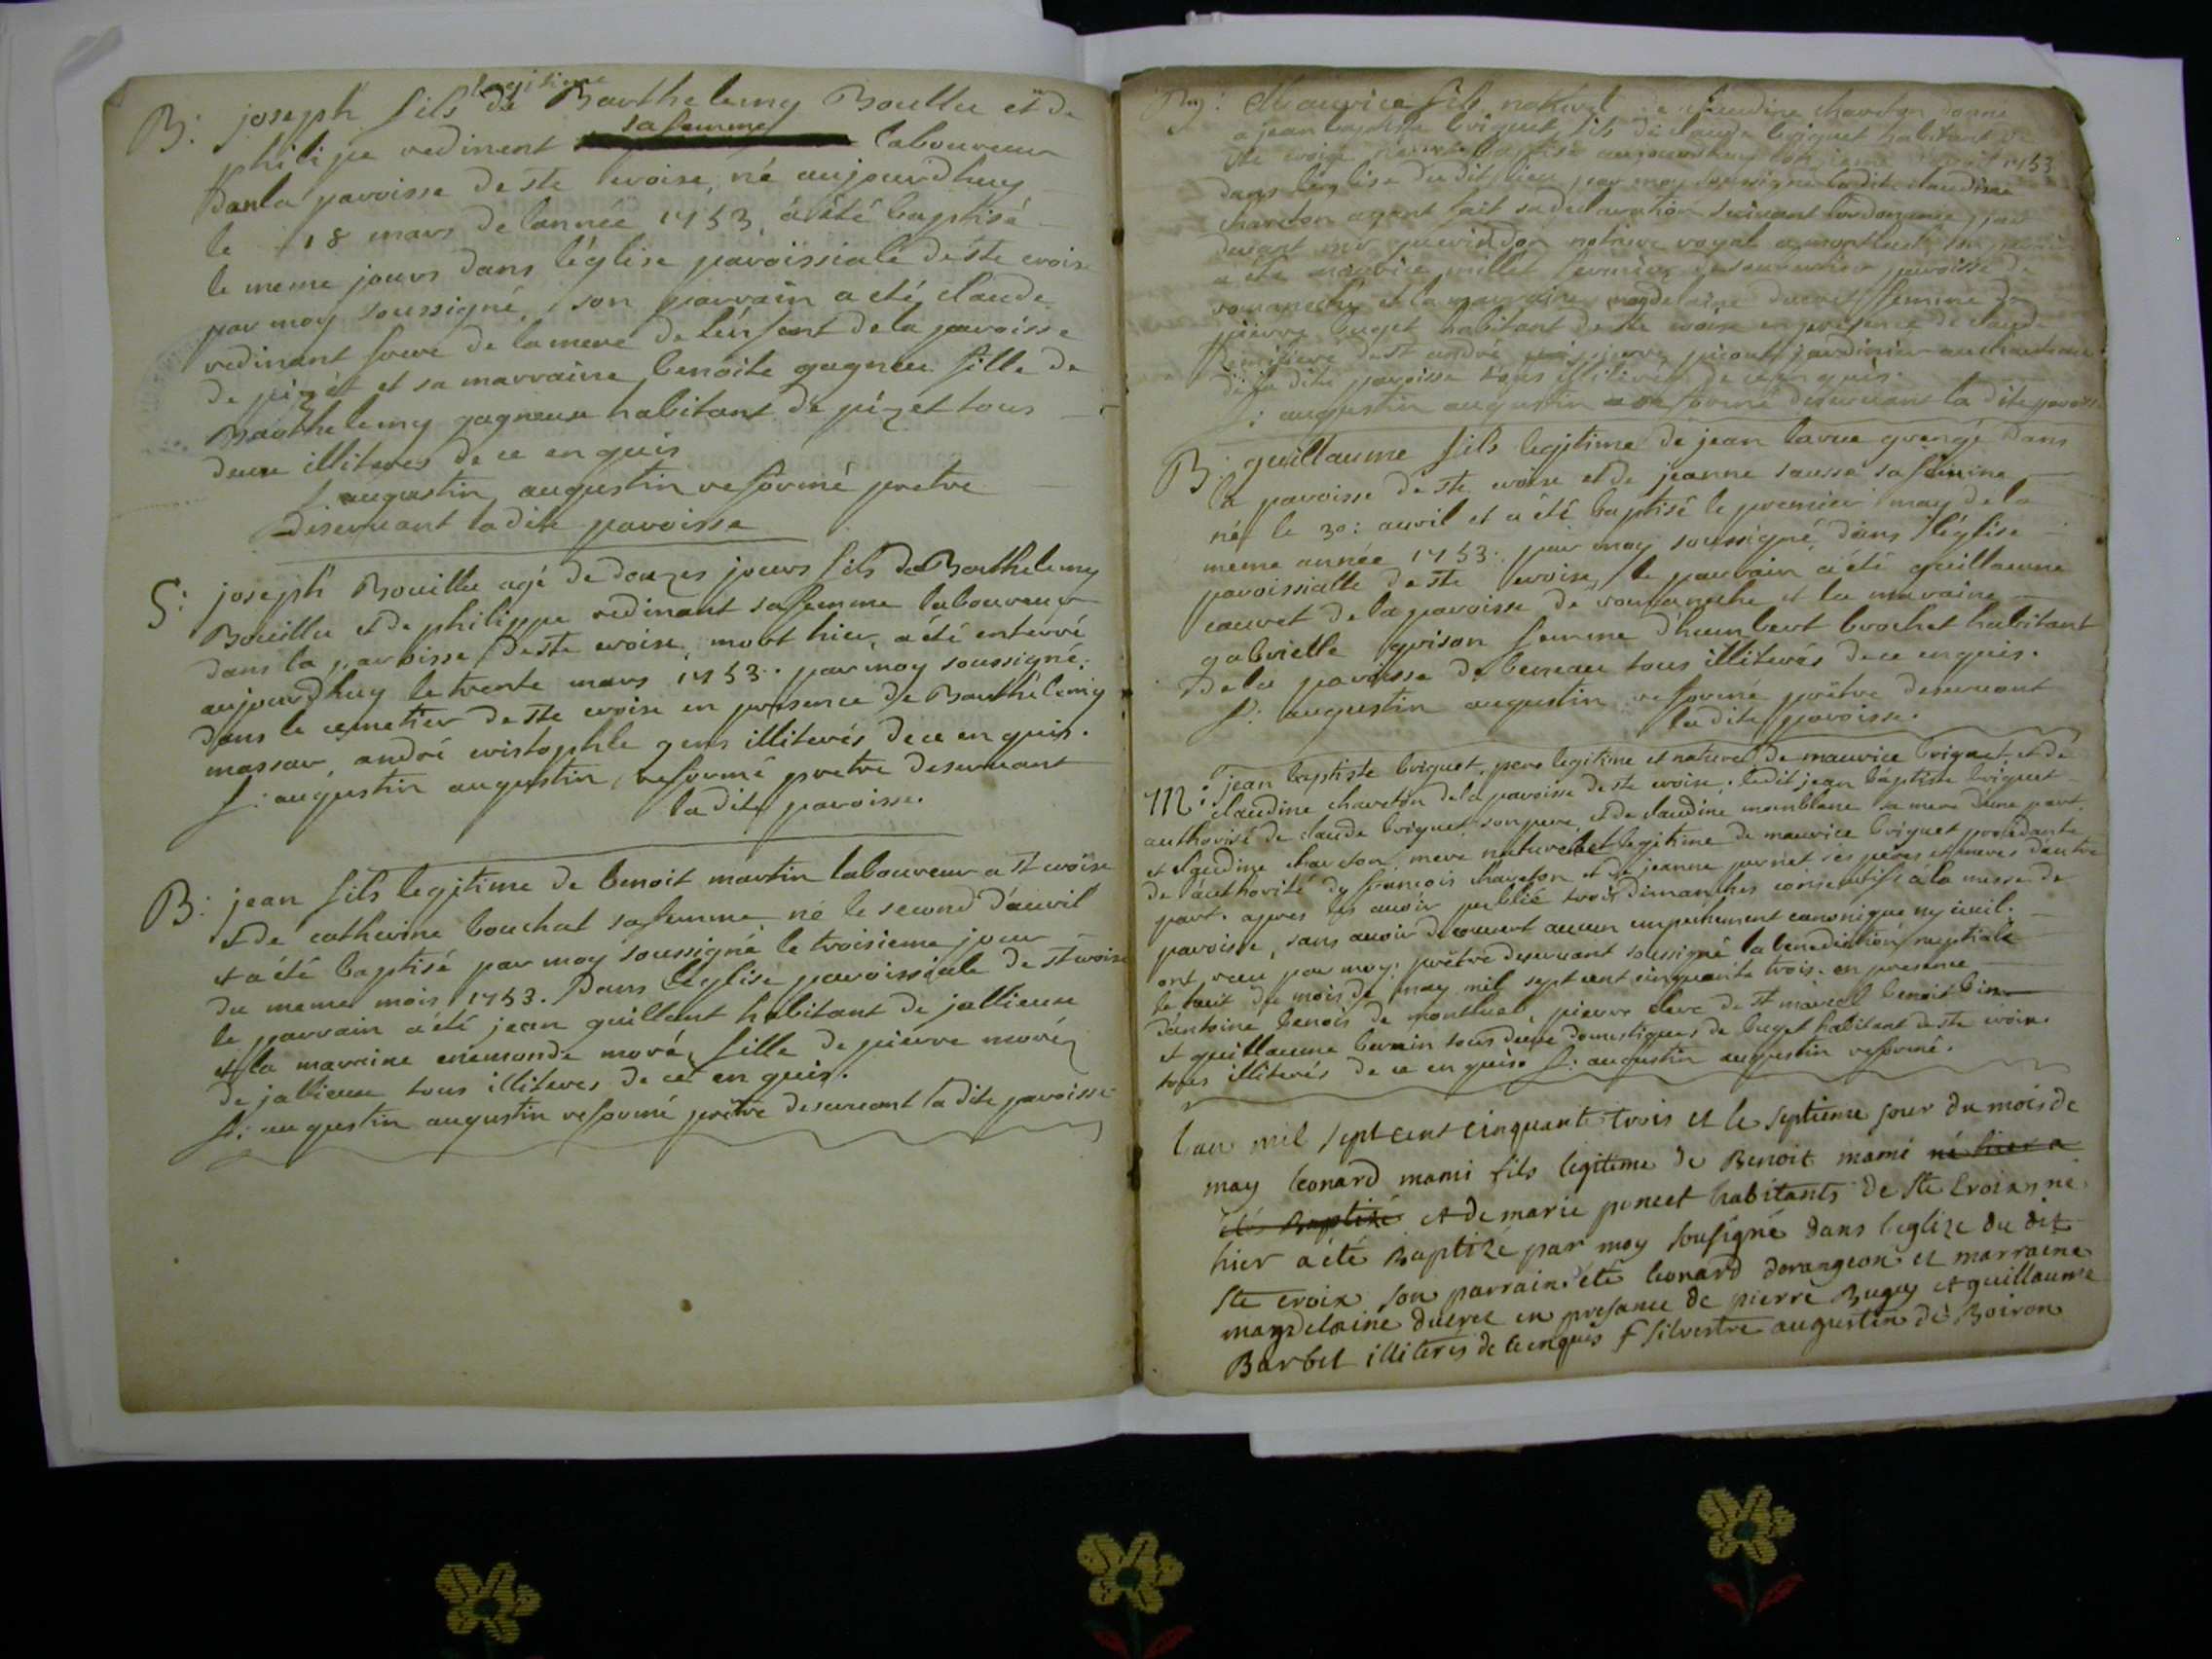 B: joseph fils legitime de Barthelemy Bouillu et de
philipe redinent sa femme laboureur
Dan la paroisse de ste croise, né aujourdhuy
le 18 mars de lannée 1753, a été baptisé
le meme jours dans l'église paroissiale de ste croise
par moy soussigné, son parrain a eté claude
redinant frere de la mere de l'enfant de la paroisse
de pizét et sa marraine benoite gagneu fille de
Barthelemy gagneux habitant de pizét tous
deux illiteres de ce enquis
f. augustin augustin reformé pretre
deservant ladite paroisse
S: joseph Bouillu agé de douzes jours fils de Barthelemy
Bouillu et de philippe redinant sa femme laboureur
dans la paroisse de ste croise mort hier, a été enterré
aujourd'huy le trente mars 1753. par moy soussigné.
dans le cemetier de ste croise en presence de Barthelemy
massar, andré cristophle gens illiterés de ce enquis.
f: augustin augustin reformé pretre deservant
la dite paroisse.
B: jean fils legitime de benoit martin laboureur a st croise
et de catherine bouchat sa femme né le second d'avril
et a été baptisé par moy soussigné le troisieme jour
du meme mois 1753. Dans l'eglise paroissiale de st croise
le parrain a été jean guillent habitant de jallieux
et la marraine enemonde moré, fille de pierre moré
de jallieux tous illiteres de ce enquis.
f: augustin augustin reformé prêtre deservant la dite paroisse
Maurice fils naturel de claudine chareton donné
a jean baptiste briguet fils de claude briguet habitant de
ste croise aujourdhuy 1753
dans leglise du dit lieu par moy soussigné la dite claudine
chareton ayant fait sa declaration suivant l'ordonnance
devant notaire royal a montluel
a eté maurice millet paroisse de
romaneche et la marraine magdelaine ducret femme de
pierre buget habitant de ste croise en presence de claude
de st andré pierre jardinier au chateau
de la dite paroisse tous illiterés de ce enquis.
f: augustin augustin reformé deservant la dite paroisse
B: guillaume fils legitime de jean larue grangé dans
la paroisse de ste croise et de jeanne sausse sa femme
né le 30: avril et a été baptisé le premier may de la
meme année 1753. par moy soussigné dans l'église
paroissialle de ste croise, le parrain a été guillaume
couret de la paroisse de romaneche et la maraine
gabrielle grison femme d'humbert brochet habitant
de la paroisse de beneau tous illiterés de ce enquis.
f: augustin augustin reformé prêtre deservant
ladite paroisse.
M: jean baptiste briguet, pere legitime et naturel de maurice briguet et de
claudine chareton de la paroisse de ste croise. ledit jean baptiste briguet
authorisé de claude briguet son pere, et de claudine momblanc sa mere d'une part.
et claudine chareton mere naturelle et legitime de maurice briguet procedante
de l'authorité de francois chareton et de jeanne pernet ses peres et meres d'autre
part. apres les avoir publié trois dimanches consecutifs a la messe de
paroisse, sans avoir decouvert aucun empechement canonique ny civil.
ont recu par moy prêtre deservant soussigné la benediction nuptiale
le huit du mois de may mil sept cent cinquante trois. en presence
d'antoine benois de montluel, pierre clerc de st marcel benoit bin
et guillaume bernin tous deux domestiques de buget habitant de ste croise.
tous illiterés de ce enquis. f: augustin augustin reformé.
lan mil sept cens cinquante trois et le septieme jour du mois de
may leonard mami fils legitime de Benoit mami né hier a
été Baptizé et de marie poncet habitants de Ste Croix, né
hier a été Baptizé par moy sousigné dans leglize du dit
Ste Croix son parrain été leonard dorangeon et marraine
magdelaine ducret en presance de pierre Buguy et guillaume
Barbet illiterés de ce enquis f Silvestre augustin de Boiron